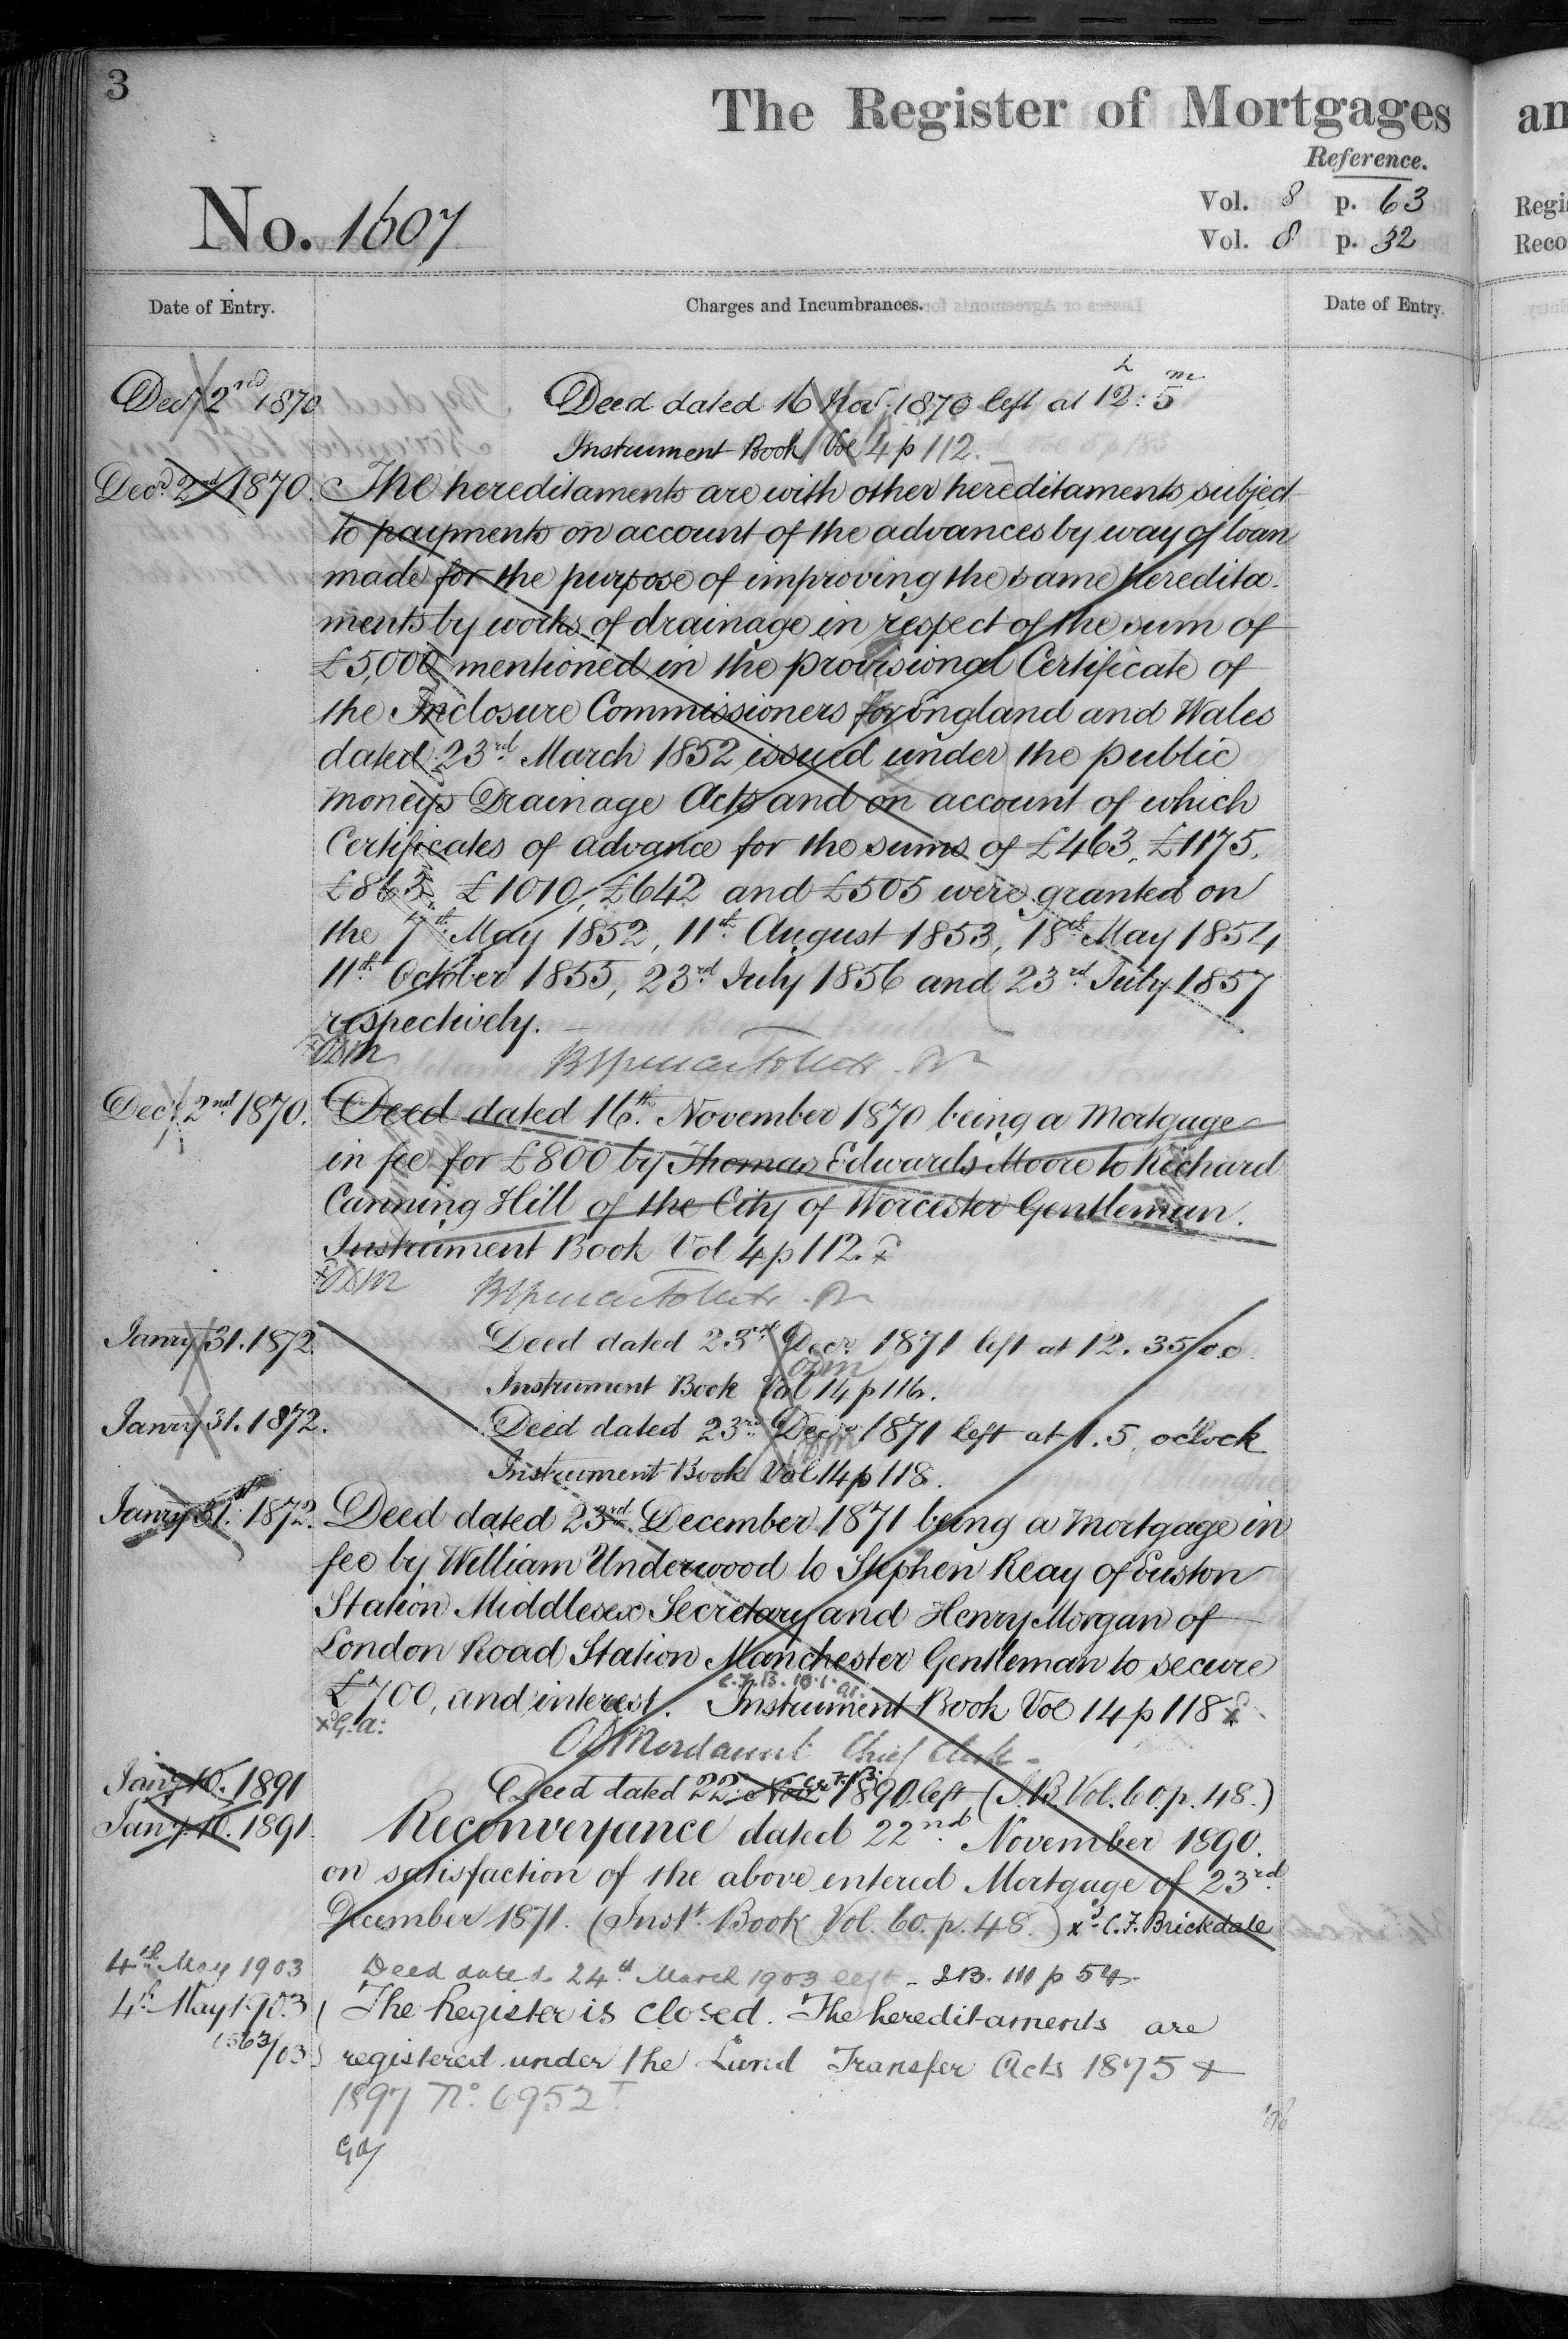 3
The Register of Mortgages
an
Reference.
No. 1607
Vol. 8 p. 63
Vol. 8 p. 32
Regi
Reco
Date of Entry.
Charges and Incumbrances.
Date of Entry.
Decr 2nd 1870
Deed dated 16 Nov. 1870 left at 12h : 5m
Instrument Book Vol 4 p 112.
Decr 2nd 1870. The hereditaments are with other hereditaments subject
to payments on account of the advances by way of loan
made for the purpose of improving the same heredita-
ments by works of drainage in respect of the sum of
£5,000 mentioned in the provisional Certificate of
the Inclosure Commissioners for England and Wales
dated 23rd March 1852 issued under the public
moneys Drainage Acts and on account of which
Certificates of advance for the sums of £463, £1175,
£865, £1010, £642 and £505 were granted on
the 7th May 1852, 11th August 1853, 18th May 1854
11th October 1855, 23rd July 1856 and 23rd July 1857
respectively.
Decr 2nd 1870. Deed dated 16th November 1870 being a Mortgage
in fee for £800 by Thomas Edwards Moore to Richard
Canning Hill of the City of Worcester Gentleman.
Instrument Book Vol 4 p 112.
Janry 31. 1872. Deed dated 23rd Decr 1871 left at 12. 35
Instrument Book Vol 14 p 116.
Janry 31. 1872. Deed dated 23rd Decr 1871 left at 1. 5 o'clock
Instrument Book Vol 14 p 118.
Janry 31st 1872. Deed dated 23rd December 1871 being a Mortgage in
fee by William Underwood to Stephen Reay of Euston
Station Middlesex Secretary and Henry Morgan of
London Road Station Manchester Gentleman to secure
£700, and interest. Instrument Book Vol 14 p 118
x G. a:
Mordaunt Chief Clerk
Jany 10. 1891 Deed dated 22 Novr 1890 left (I.B. Vol. 60. p. 48.)
Jany 10. 1891. Reconveyance dated 22nd November 1890.
on satisfaction of the above entered Mortgage of 23rd
December 1871. (Inst. Book Vol. 60. p. 48.) xd C. F. Brickdale
4th May 1903 Deed dated 24th March 1903 left - I.B. 111 p 54
4th May 1903 The Register is closed. The hereditaments are
1563/03 registered under the Land Transfer Acts 1875 &
1897 No. 6952